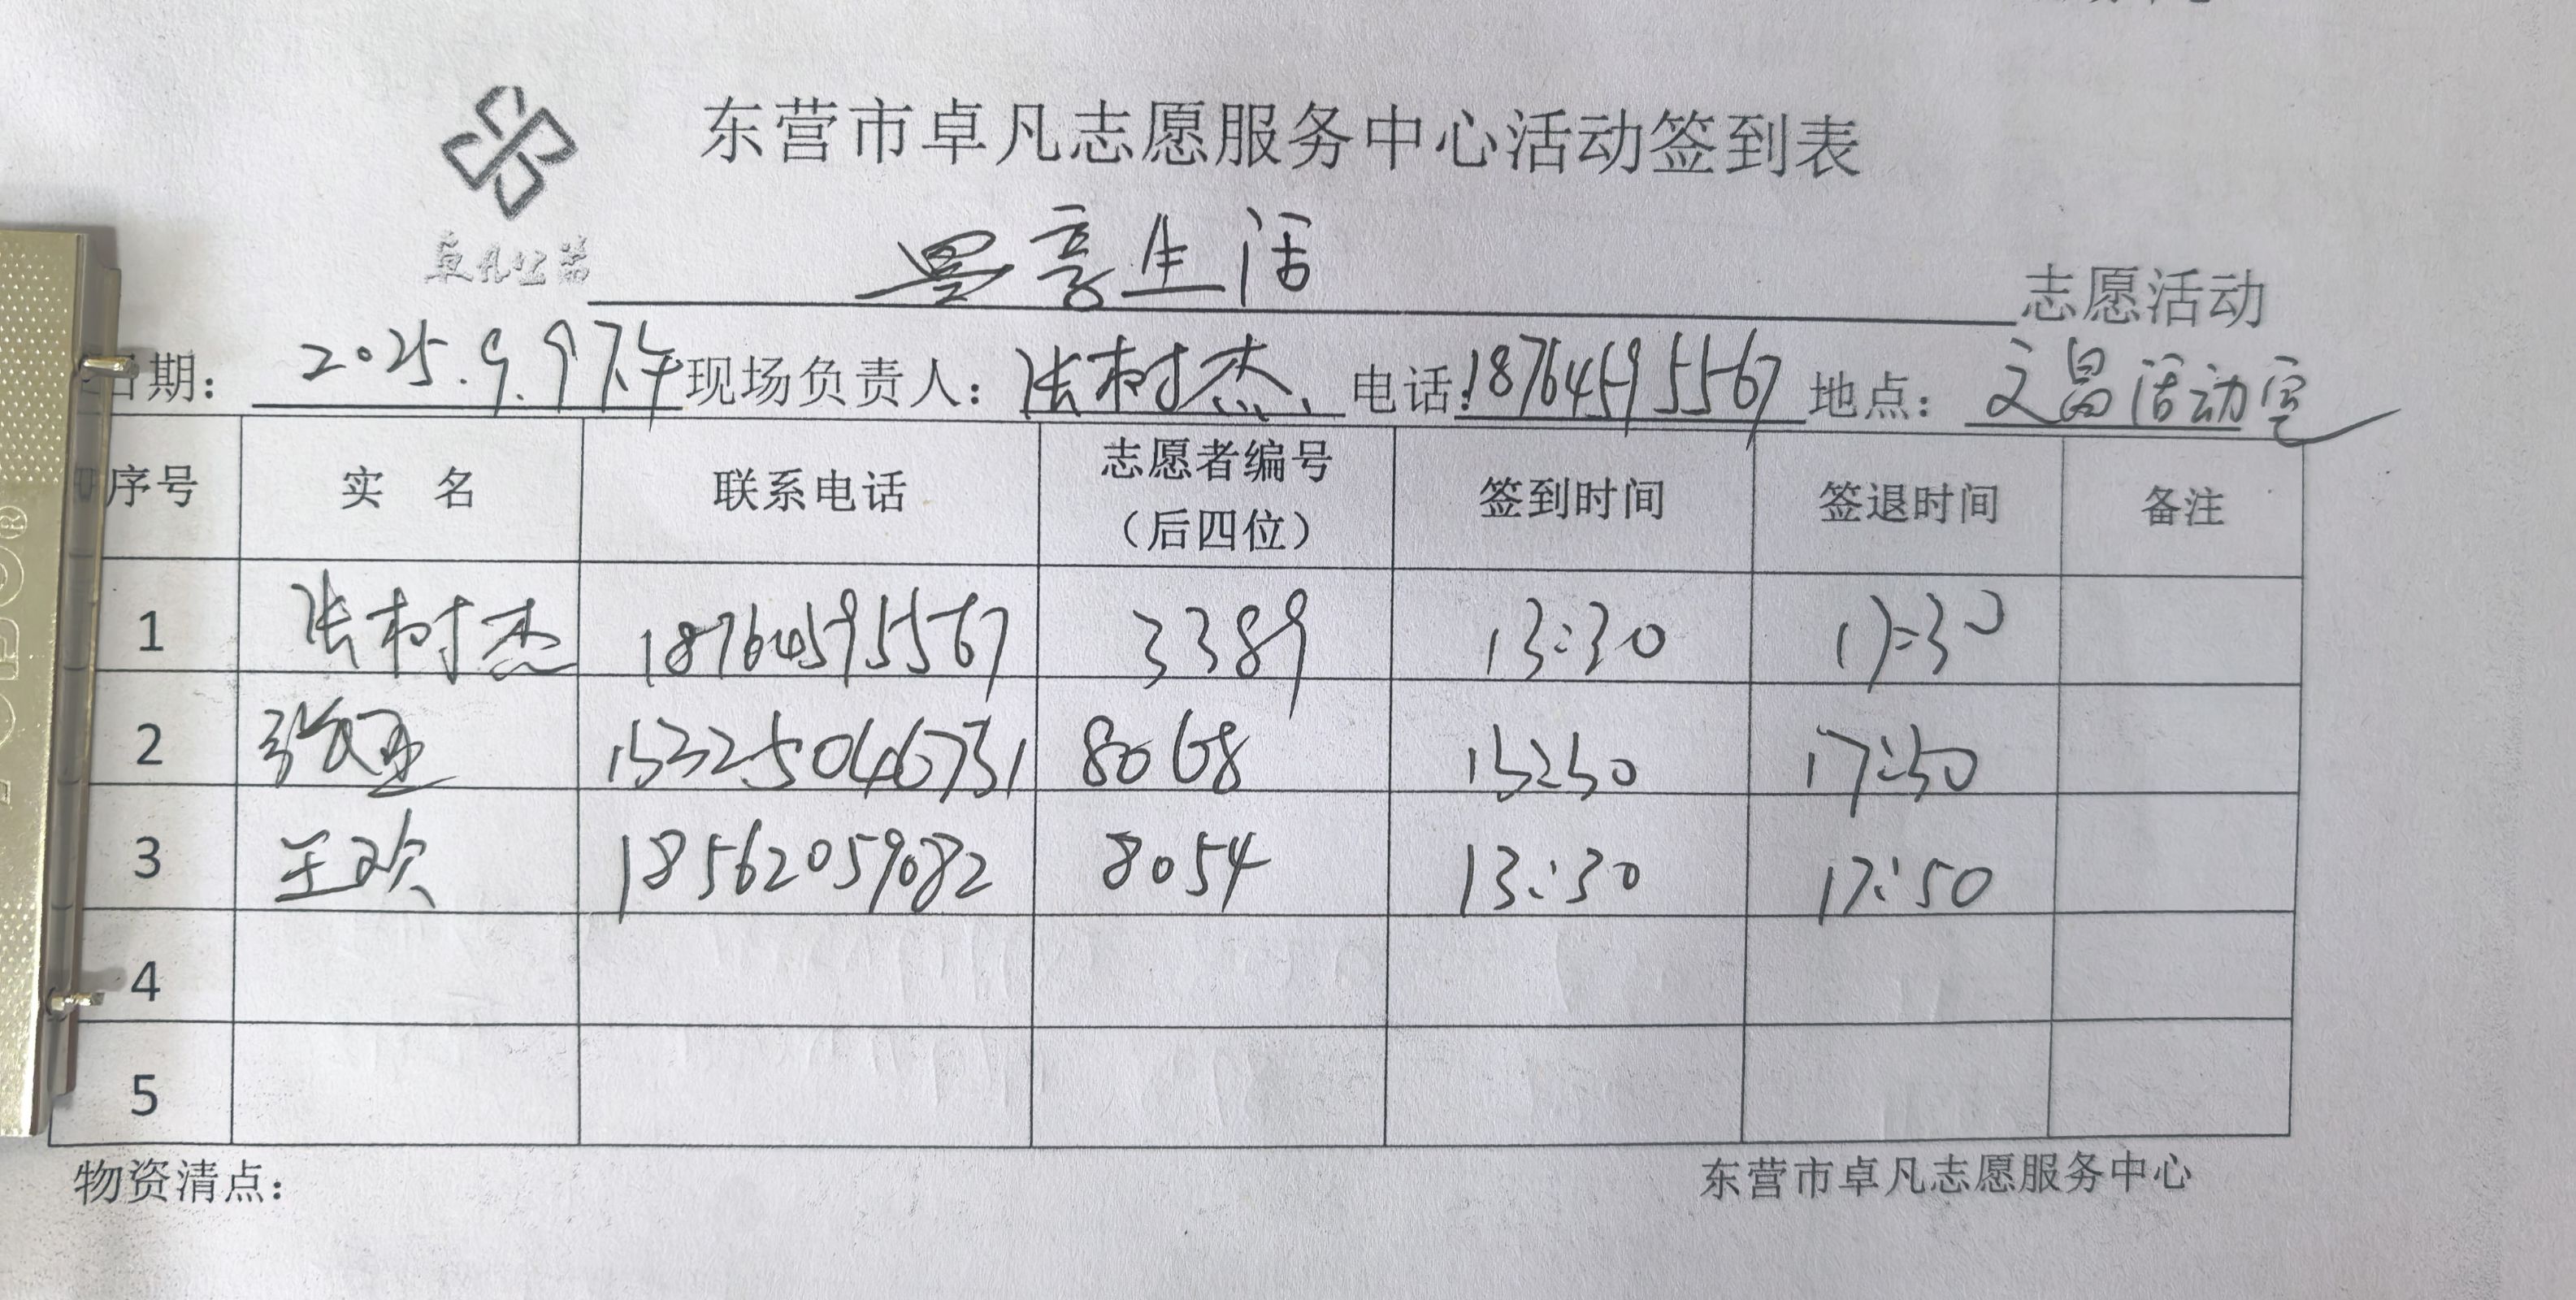 东营市卓凡志愿服务中心活动签到表
卓凡公益
享生活 志愿活动
日期: 2025.9.9下午 现场负责人: 张树杰 电话: 18764595567 地点: 文昌活动室
序号 实 名 联系电话 志愿者编号(后四位) 签到时间 签退时间 备注
1 张树杰 18764595567 3389 13:30 17:30
2 15325046731 8068 17:50
3 王欢 18562059082 8054 13:30 17:50
4
5
物资清点:
东营市卓凡志愿服务中心